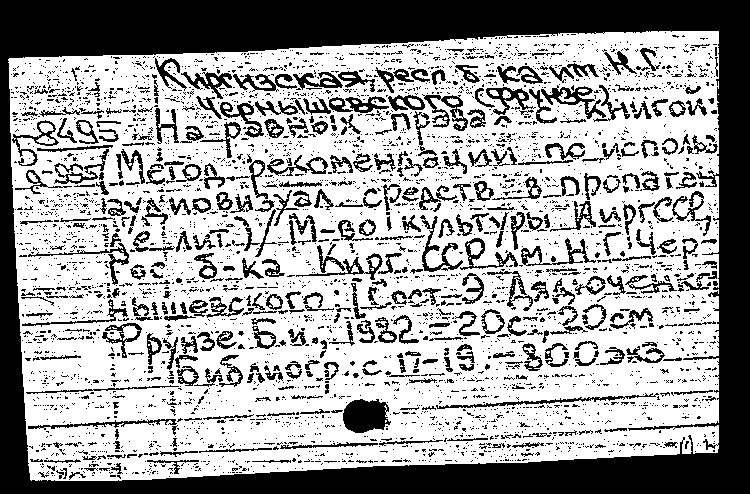 Киргизская респ. б-ка им. Н.Г.
Чернышевского (Фрунзе)
Б8495 На равных правах с книгой:
(Метод. рекомендации по использ
аудиовизуал. средств в пропаган
де лит.) / М-во культуры КиргССР,
Гос. б-ка Кирг. ССР им. Н.Г. Чер-
нышевского; [Сост. Э. Дядюченко
Фрунзе: Б.и., 1982. - 20с.; 20см.
Библиогр.: с. 17-19. - 800 экз